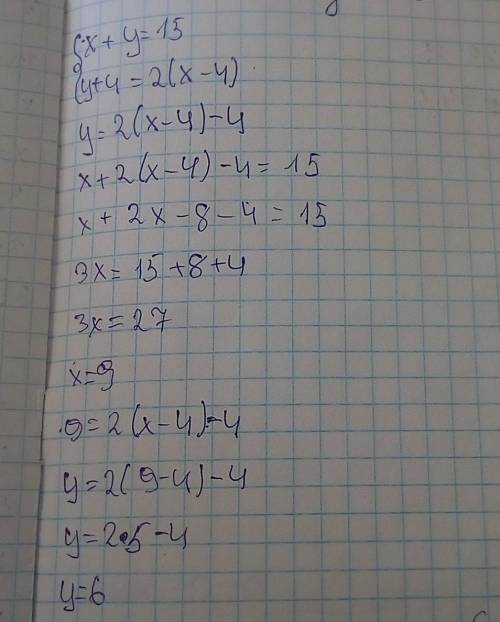 {x+y=15
{y+4=2(x-4)
y=2(x-4)-4
x+2(x-4)-4=15
x+2x-8-4=15
3x=15+8+4
3x=27
x=9
9=2(x-4)-4
y=2(9-4)-4
y=2•5-4
y=6